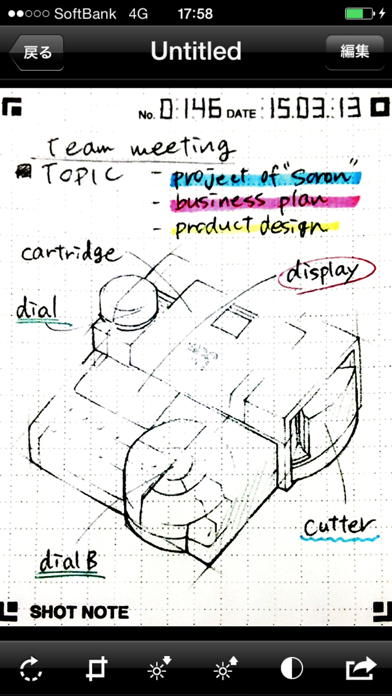 SoftBank 4G 17:58
戻る Untitled 編集
No. 0:146 DATE :15.03.:13
Team meeting
TOPIC - project of "Soron"
- business plan
- product design
cartridge
display
dial
cutter
dial B
SHOT NOTE